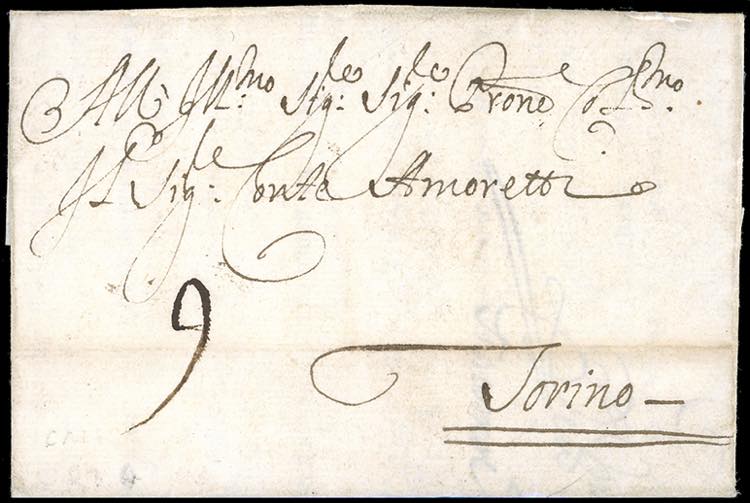 All' Ill:mo Sig:re Sig:re P̃rone Col:mo
Il Sig:re Conte Amoretti
9
Torino